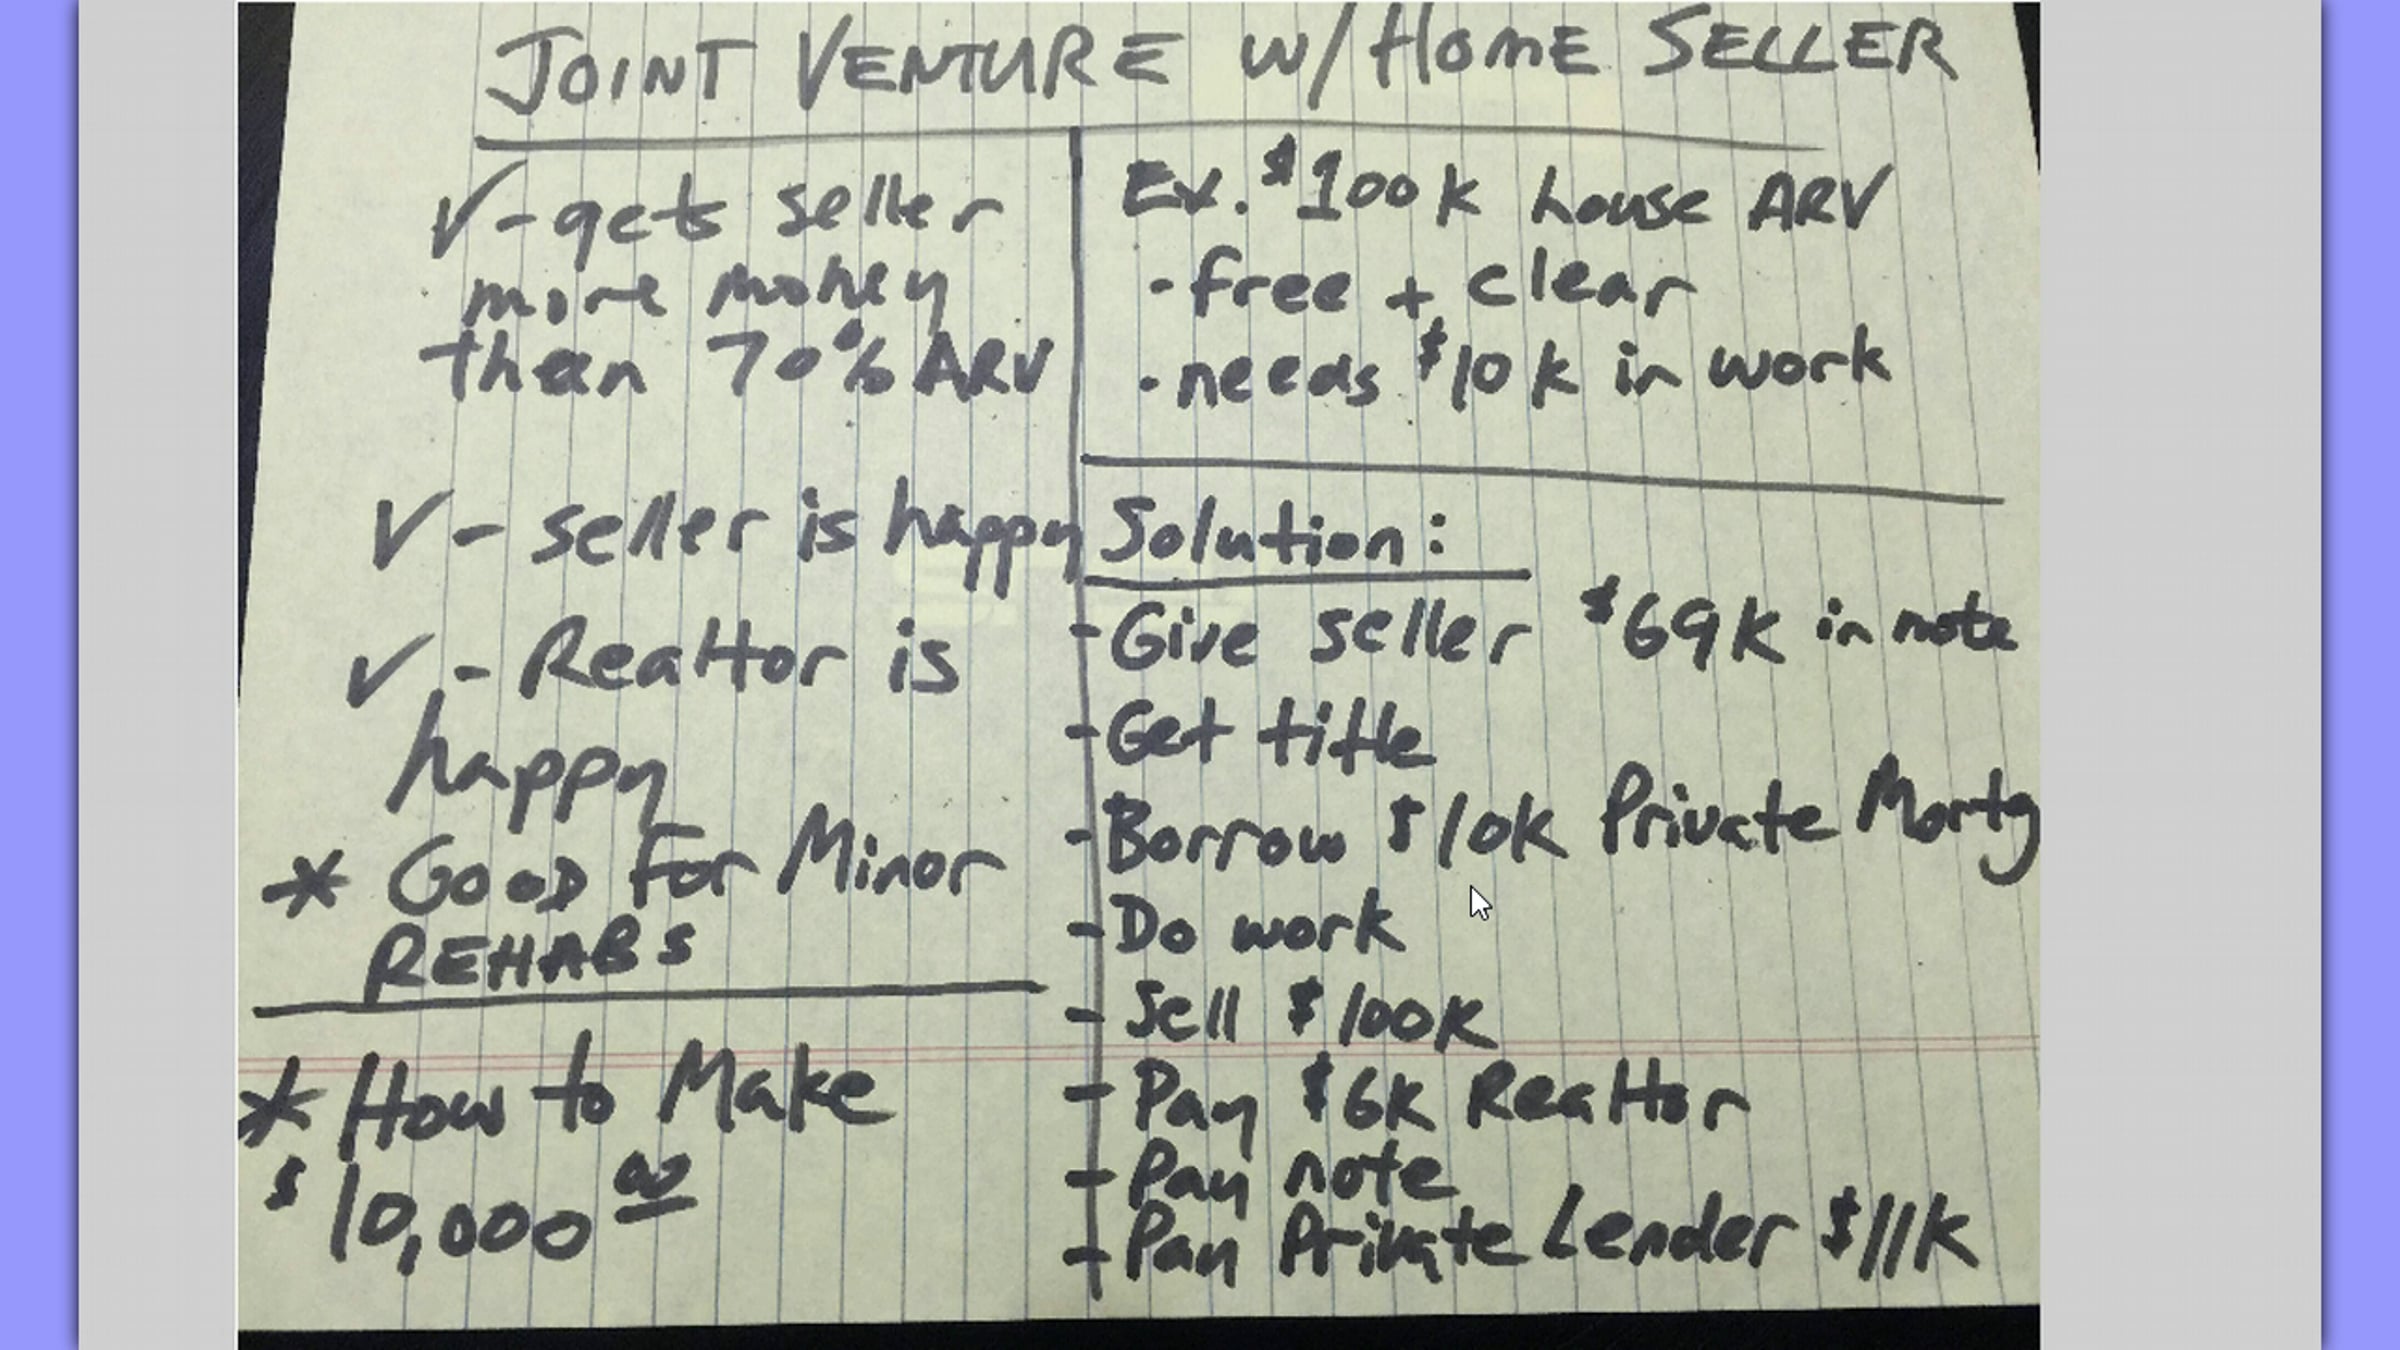 JOINT VENTURE w/ HOME SELLER
✓ - gets seller
more money
than 70% ARV
✓ - seller is happy
✓ - Realtor is
happy
* GOOD For Minor
REHABS
* How to Make
$10,000 00
Ex. $100k house ARV
· free + clear
· needs $10k in work
Solution:
- Give seller $69k in note
- Get title
- Borrow $10k Private Mortg
- Do work
- Sell $100k
- Pay $6k Realtor
- Pay note
- Pay Private Lender $11k